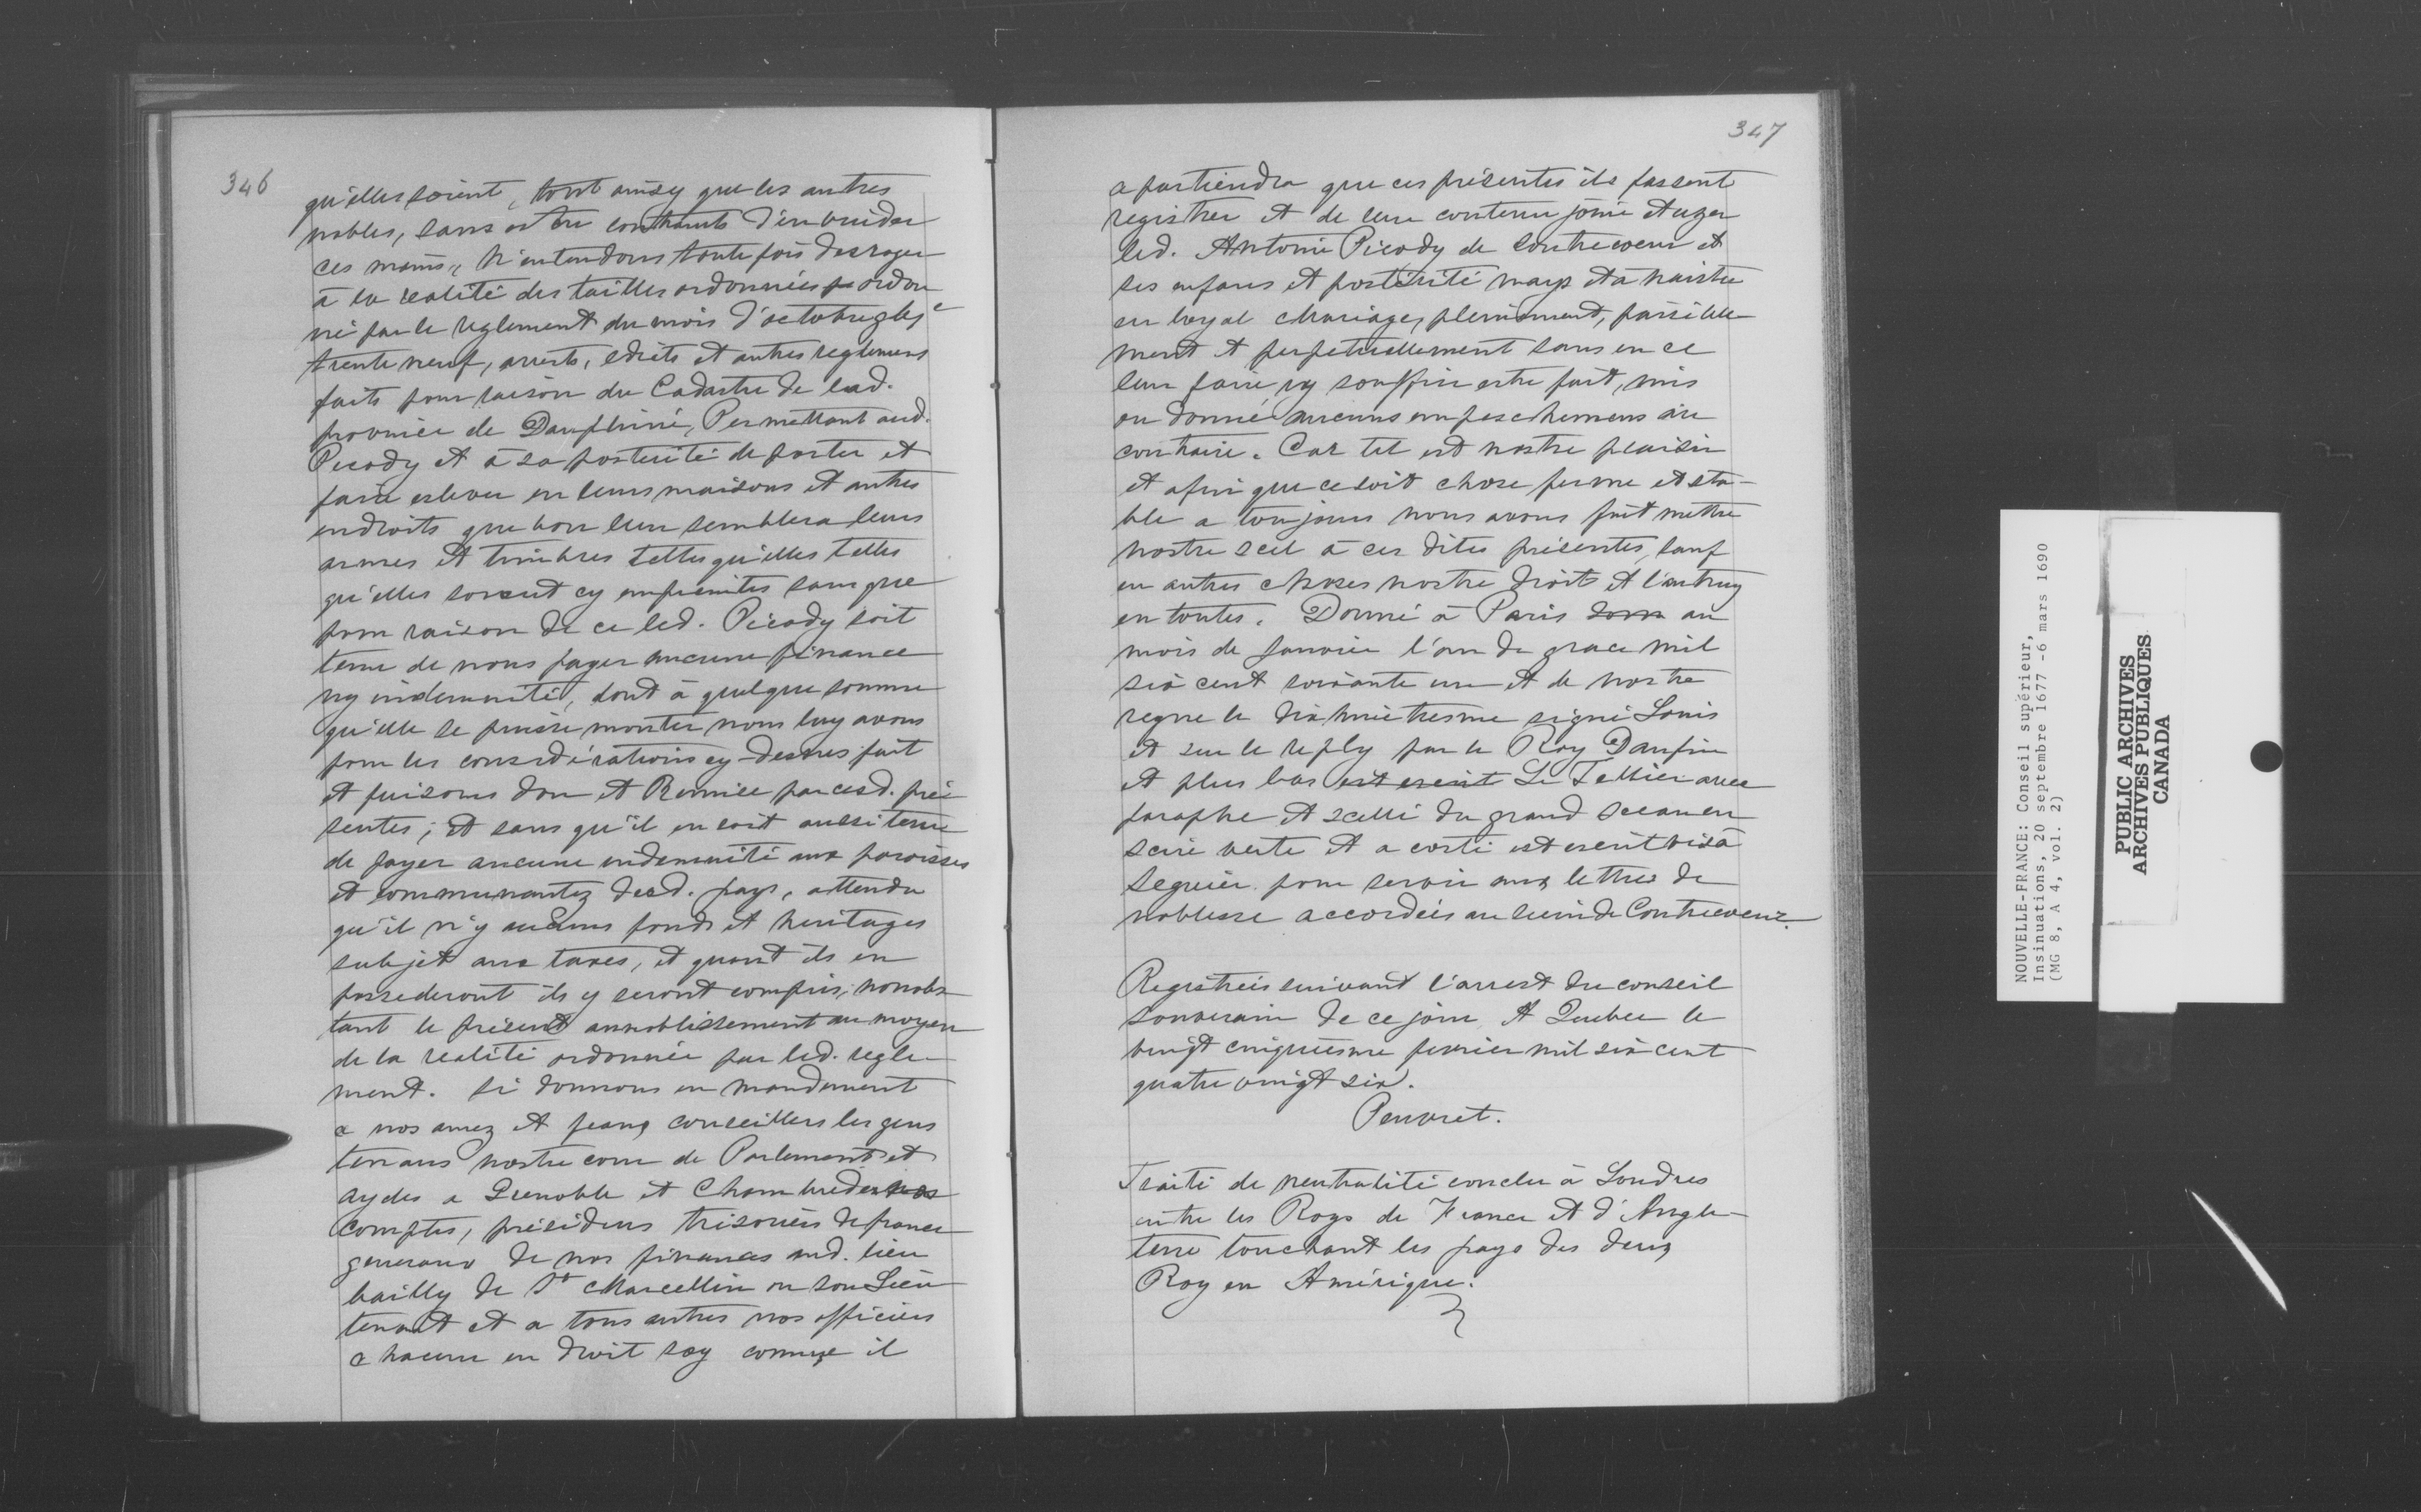 346
qu'elles soient, tout ainsy que les autres
nobles, sans estre contraints d'en vuider
ces mains, N'entendons toutefois desroger
à la realité des tailles ordonnées par ordon
né par le reglement du mois d'octobre
trente neuf, arrests, edits et autres reglemens
faits pour raison du Cadastre de lad.
province de Dauphiné, Permettant aud.
Pecody et à sa posterité de porter et
faire eslever en leurs maisons et autres
endroits que bon leur semblera leurs
armes et timbres telles qu'elles telles
qu'elles soient cy empreintes sans que
pour raison de ce led. Pécody soit
tenu de nous payer aucune finance
ny indemnité, dont à quelque somme
qu'elle se puisse monter nous luy avons
pour les considérations cy-dessus fait
et faisons don et Remise par cesd. pré
sentes; et sans qu'il en soit aussi tenu
de payer aucune indemnité aux paroisses
et communautez desd. pays, attendu
qu'il n'y a aucuns fonds et heritages
subjet aux taxes, et quant ils en
possederont ils y seront compris, nonobs
tant le présent annoblissement au moyen
de la realité ordonnée par led. regle-
ment. Si donnons en mandement
a nos amez et feaux conseillers les gens
tenans nostre cour de Parlement et
aydes a Grenoble et Chambre des nos
comptes, présidens trisoriers de france
generaux de nos finances aud. lieu
bailly de St Marcellin ou son Lieu
tenant et a tous autres nos officiers
chacun en droit soy comme il
347
apartiendra que ces présentes ils fassent
registrer et de leur contenu jouir et uzer
led. Antoine Pécody de Contrecoeur et
ses enfans et postérité nays et à naistre
en loyal Mariage, plainement, paisible-
ment et perpetuellement sans en ce
leur faire ny souffrir estre fait, mis
ou donné aucuns empeschemens au
contraire. Car tel est nostre plaisir
et afin que ce soit chose ferme et sta-
ble a toujours nous avons fait mettre
nostre scel à ces dites présentes, sauf
en autres choses nostre droit et l'autruy
en toutes. Donné à Paris donn au
mois de Janvier l'an de grace mil
six cent soixante un et de nostre
regne le dix huictiesme signé Louis
et sur le reply par le Roy Daufin
et plus bas est escrit Le Tellier avec
paraphe et scellé du grand sceau en
scire verte et a costé est escrit visa
Seguier pour servir aux lettres de
noblesse accordées au sieur de Contrecoeur.
Registrées suivant l'arrest du conseil
souverain de ce jour A Quebec le
vingt cinquiesme fevrier mil six cent
quatre vingt six.
Peuvret.
Traité de neutralité conclu à Londres
entre les Roys de France et d'Angle-
terre touchant les pays des deux
Roy en Amérique.
NOUVELLE-FRANCE: Conseil supérieur,
Insinuations, 20 septembre 1677 -6 mars 1690
(MG 8, A 4, vol. 2)
PUBLIC ARCHIVES
ARCHIVES PUBLIQUES
CANADA